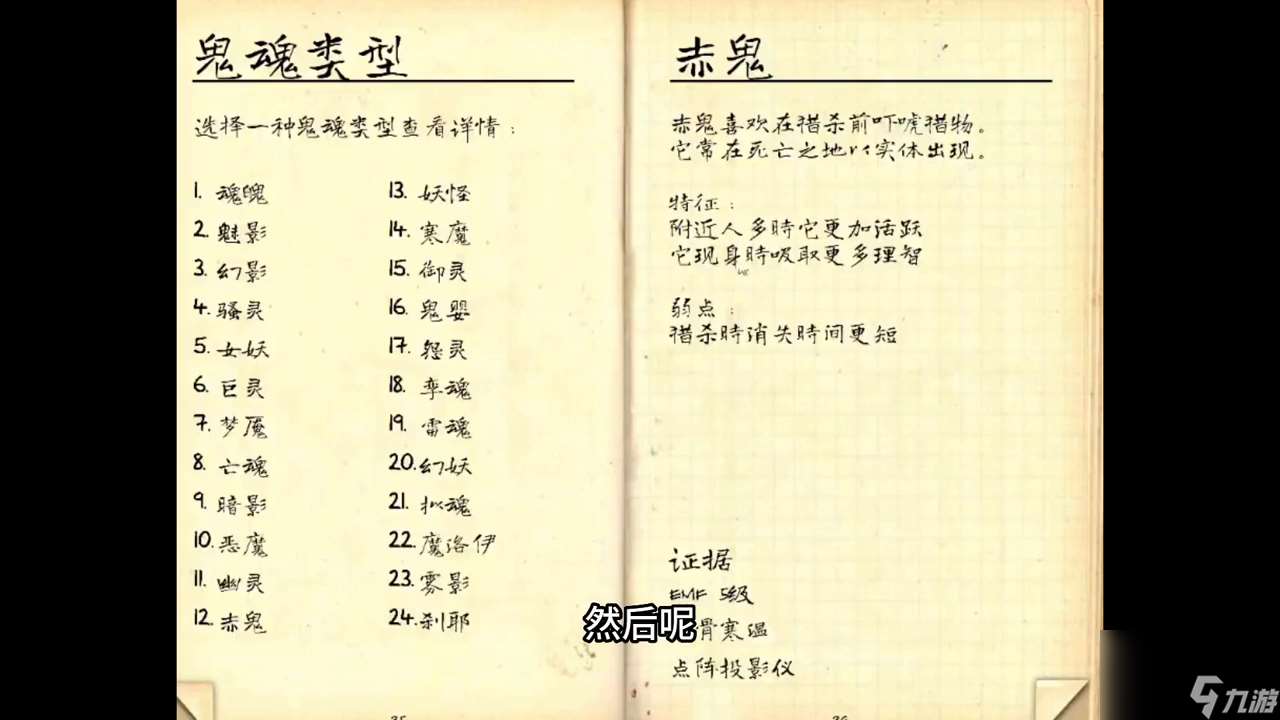 鬼魂类型
选择一种鬼魂类型查看详情:
1. 魂魄
2. 魅影
3. 幻影
4. 骚灵
5. 女妖
6. 巨灵
7. 梦魇
8. 亡魂
9. 暗影
10. 恶魔
11. 幽灵
12. 赤鬼
13. 妖怪
14. 寒魔
15. 御灵
16. 鬼婴
17. 怨灵
18. 孪魂
19. 雷魂
20. 幻妖
21. 拟魂
22. 魔洛伊
23. 雾影
24. 刹耶
赤鬼
赤鬼喜欢在猎杀前吓唬猎物。
它常在死亡之地以实体出现。
特征:
附近人多時它更加活跃
它现身時吸取更多理智
弱点:
猎杀時消失時间更短
证据
EMF 5级
骨寒温
点阵投影仪
然后呢
九游